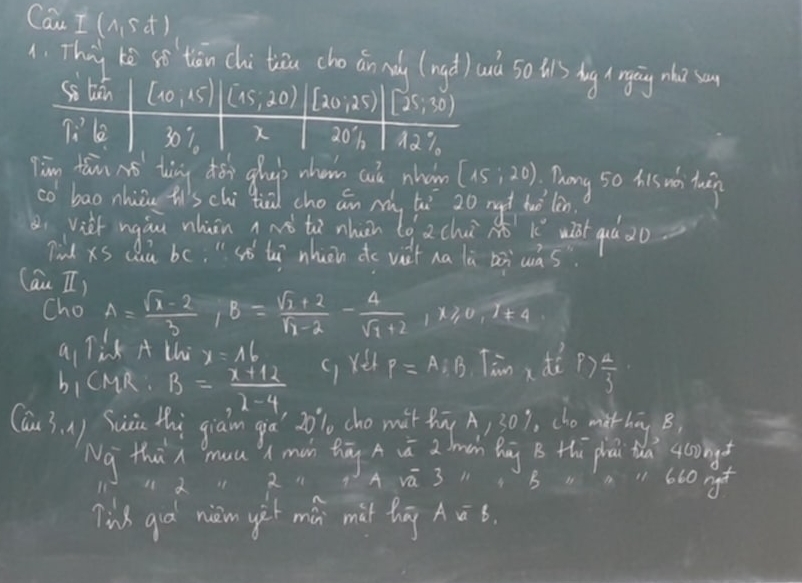 Câu I (1,5đ)
1. Thống kê số tiền chi tiêu cho ăn sáng (ngđ) của 50 h/s trg 1 ngày như sau
Số tiền | [10;15) | [15;20) | [20;25) | [25;30)
Tỉ lệ | 30% | x | 20% | 12%
Tìm tần số tương đối ghép nhóm của nhóm [15;20). Trong 50 h/s nói trên
có bao nhiêu h/s chi tiêu cho ăn sáng từ 20 ngđ trở lên.
2. Viết ngẫu nhiên 1 số tự nhiên có 2 chữ số k° vượt quá 20
Tính XS của bc: "số tự nhiên đc viết ra là bội của 5".
Câu II)
Cho A = (√x - 2)/3, B = (√x + 2)/(√x - 2) - 4/(√x + 2), x ≥ 0, x ≠ 4.
a, Tính A khi x = 16.
b, CMR: B = (x + 12)/(x - 4)
c, Xét P = A.B. Tìm x để P > 4/3.
Câu 3. 1) Siêu thị giảm giá 20% cho mặt hàng A, 30% cho mặt hàng B.
Ng thứ 1 mua 1 món hàng A và 2 món hàng B thì phải trả 400 ngđ
" " 2 " 2 " " A và 3 " " B " " " 660 ngđ
Tính giá niêm yết mỗi mặt hàng A và B.